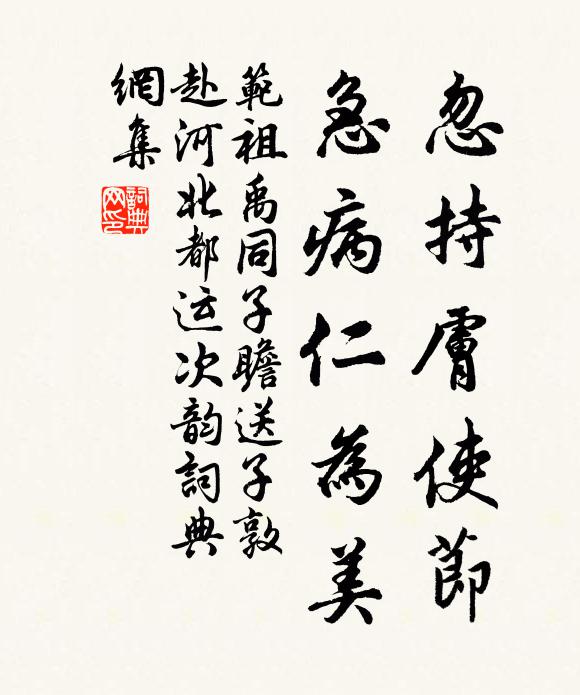 忽持膚使節
急病仁為美
範祖禹同子瞻送子敦
赴河北都运次韵詞典
網集
詞典
网印